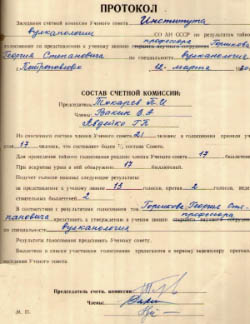 ПРОТОКОЛ
Заседания счетной комиссии Ученого совета Института
вулканологии СО АН СССР по результатам тайного
голосования по представлению к ученому званию профессора Горшкова
Георгия Степановича по специальности вулканология
Петропавловск 12 марта
СОСТАВ СЧЕТНОЙ КОМИССИИ:
Председатель Токарев П.И.
Члены
Авдейко Г.П.
Из списочного состава членов Ученого совета 21 человек в голосовании приняли уча-
стие 17 человек, что составляет более 2/3 состава Совета.
Для проведения тайного голосования роздано членам Ученого совета 17 бюллетеней.
При вскрытии урны в ней обнаружено 17 бюллетеней.
Подсчет голосов выявил следующие результаты:
за представление к ученому званию 13 голосов, против 2 голоса, недей-
ствительных бюллетеней 2
В соответствии с результатами голосования Горшкова Георгия Сте-
пановича представить к утверждению в ученом звании профессора
по специальности вулканология
Результаты голосования представить Ученому совету.
заседания Ученого совета.
Председатель счетной комиссии
Члены: